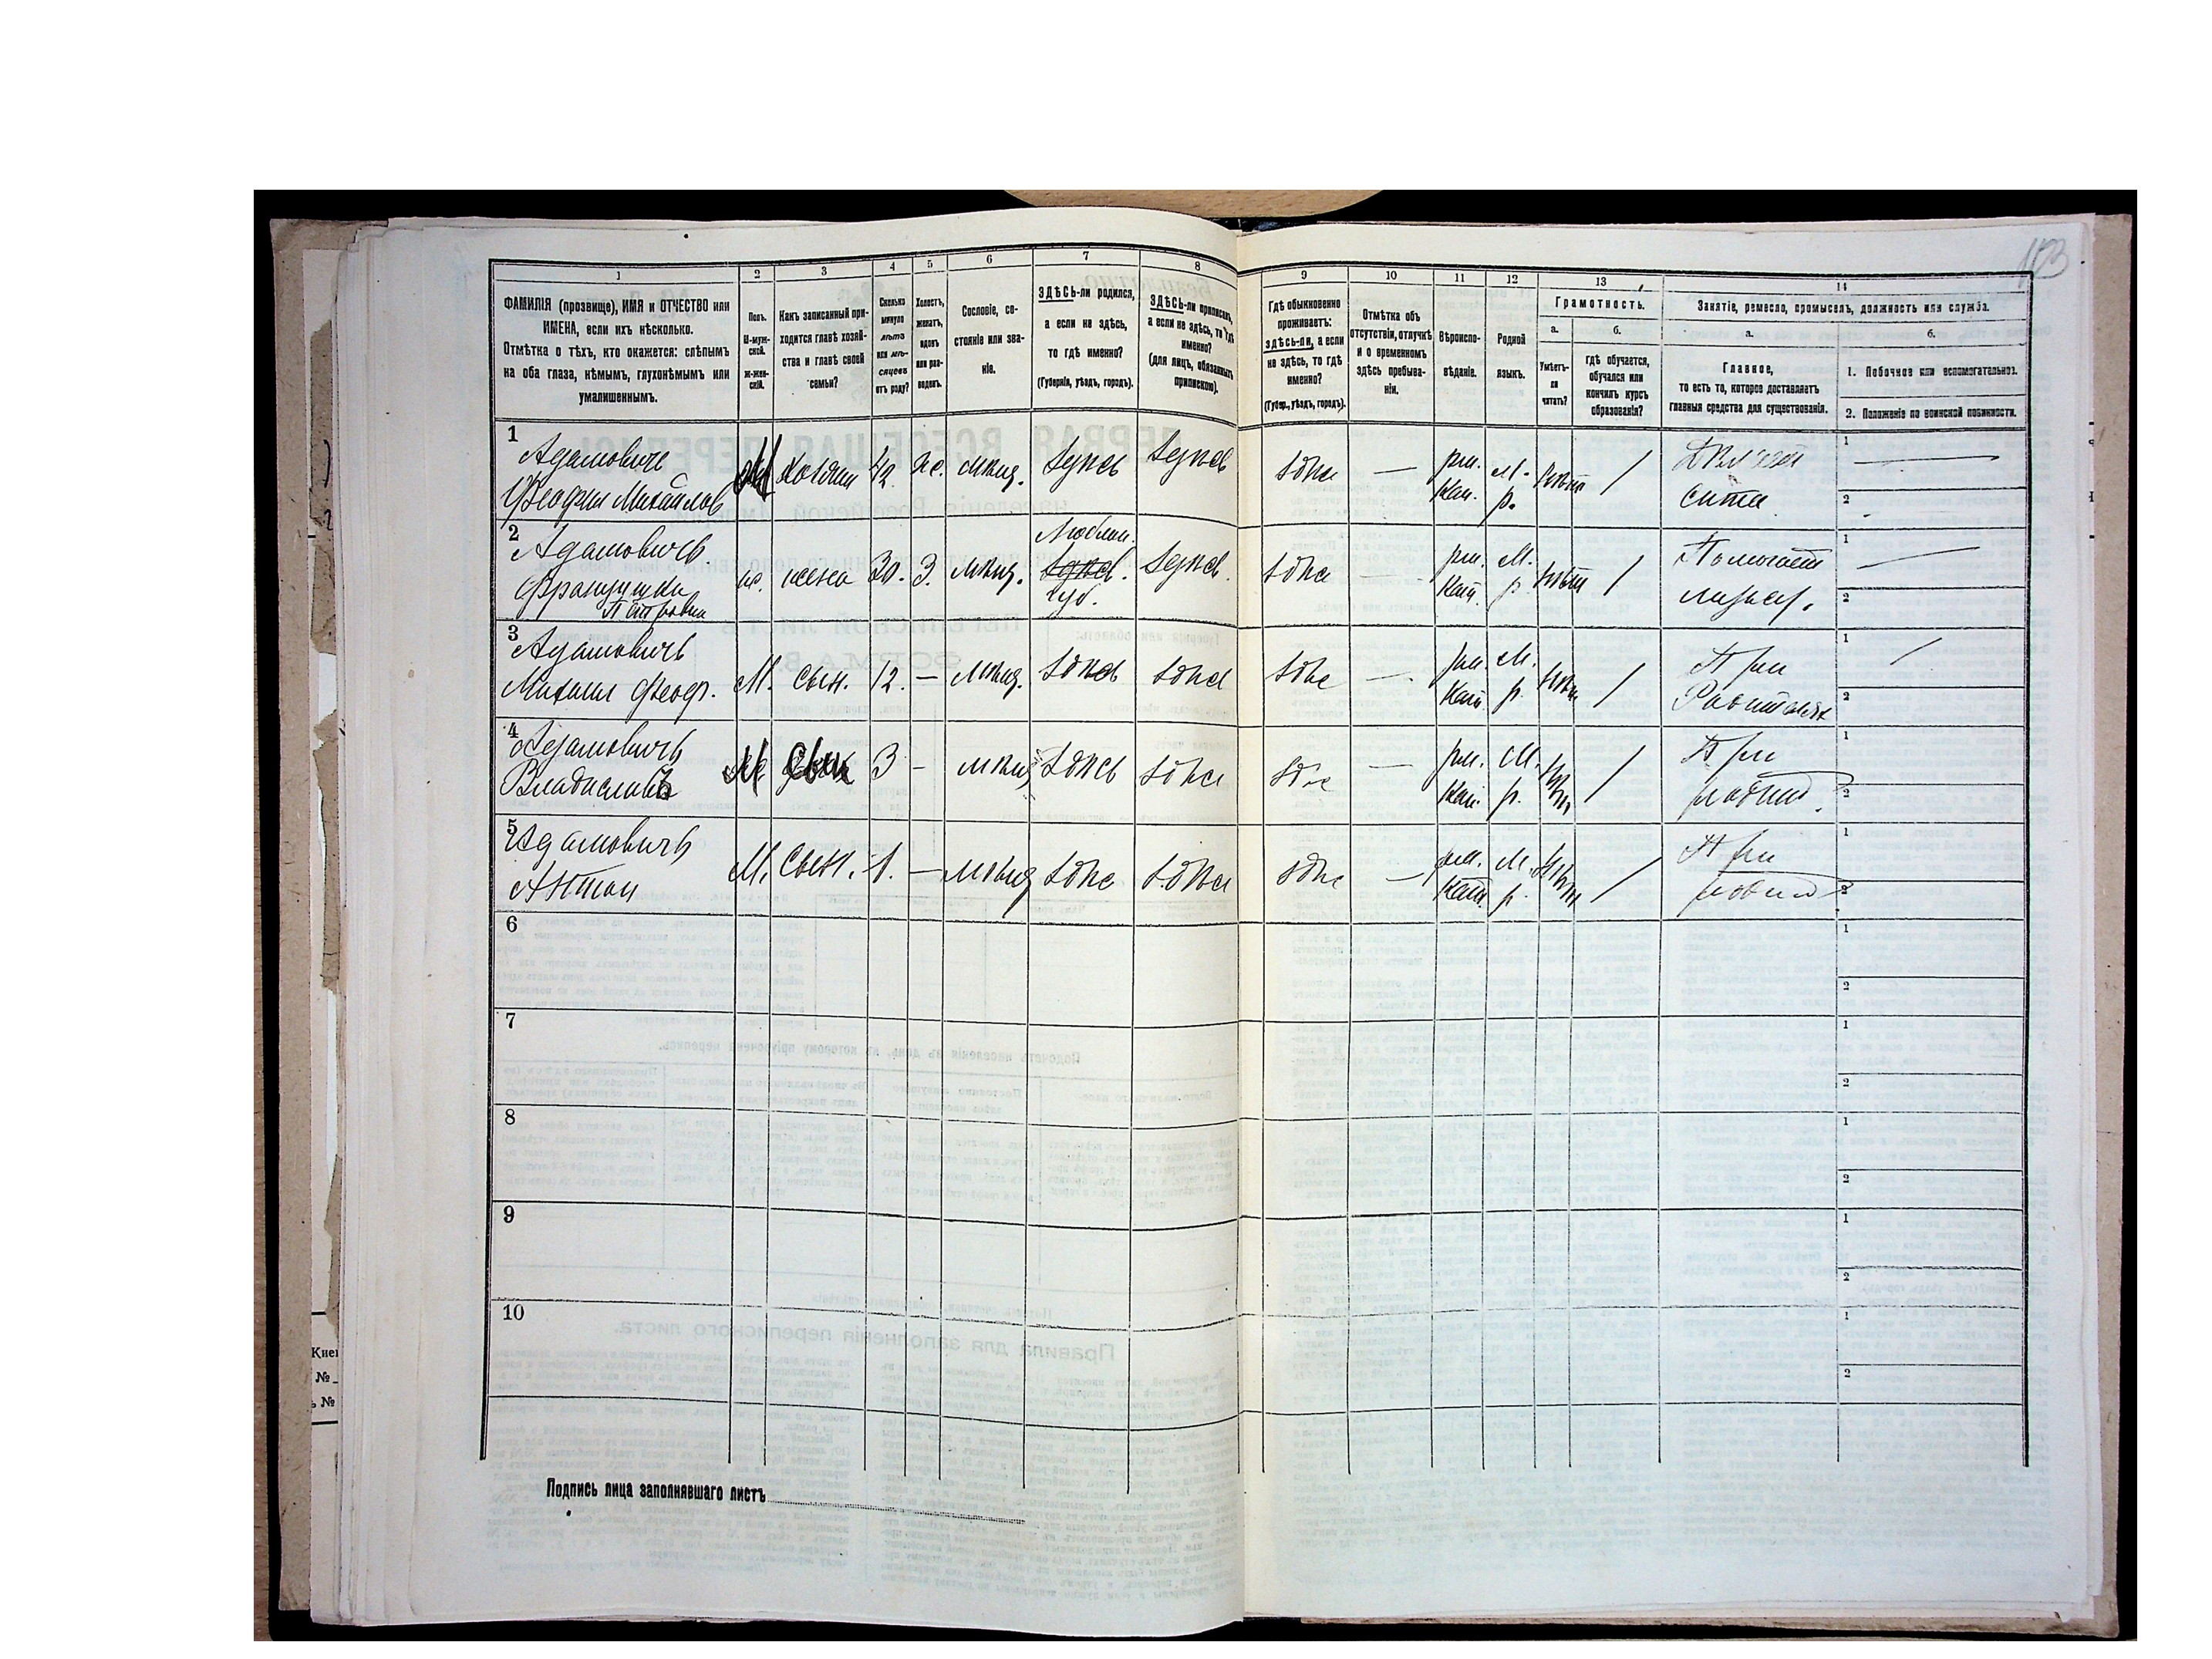 103
1 2 3 4 5 6 7 8 9 10 11 12 13 14
ФАМИЛІЯ (прозвище), ИМЯ и ОТЧЕСТВО или
ИМЕНА, если ихъ нѣсколько.
Отмѣтка о тѣхъ, кто окажется: слѣпымъ
на оба глаза, нѣмымъ, глухонѣмымъ или
умалишеннымъ.
Полъ.
М-муж-
ской.
Ж-жен-
скій.
Какъ записанный при-
ходится главѣ хозяй-
ства и главѣ своей
семьи?
Сколько
минуло
лѣтъ
или мѣ-
сяцевъ
отъ роду?
Холостъ,
женатъ,
вдовъ
или раз-
веденъ.
Сословіе, со-
стояніе или зва-
ніе.
ЗДѢСЬ-ли родился,
а если не здѣсь,
то гдѣ именно?
(Губернія, уѣздъ, городъ).
ЗДѢСЬ-ли приписанъ,
а если не здѣсь, то гдѣ
именно?
(для лицъ, обязанныхъ
припискою).
Гдѣ обыкновенно
проживаетъ:
здѣсь-ли, а если
не здѣсь, то гдѣ
именно?
(Губер., уѣздъ, городъ).
Отмѣтка объ
отсутствіи, отлучкѣ
и о временномъ
здѣсь пребыва-
ніи.
Вѣроиспо-
вѣданіе.
Родной
языкъ.
Грамотность.
а. б.
Умѣетъ-
ли
читать?
гдѣ обучается,
обучался или
кончилъ курсъ
образованія?
Занятіе, ремесло, промыселъ, должность или служба.
а. б.
Главное,
то есть то, которое доставляетъ
главныя средства для существованія.
1. Побочное или вспомогательное.
2. Положеніе по воинской повинности.
1
Адамовичъ
Михайлов
М хозяин 42 ж. мѣщ. здѣсь здѣсь здѣсь — рим. кат. м. р. нѣтъ /
сита
1 —
2
2
Адамовичъ
Францишка
Петровна
ж. жена 30. З. мѣщ. Люблин. губ. здѣсь здѣсь — рим. кат. м. р. нѣтъ /
Помогает
мужу.
1 —
2
3
Адамовичъ
Михаил Феоф.
М. сын. 12. — мѣщ. здѣсь здѣсь здѣсь — рим. кат. м. р. нѣтъ /
При
родителях
1
2
4
Адамовичъ
Владиславъ
М сын 3 — мѣщ здѣсь здѣсь здѣсь — рим. кат. м. р. нѣтъ /
При
родит.
1
2
5
Адамовичъ
Антон
М. сын. 1. — мѣщ здѣсь здѣсь здѣсь — рим. кат. м. р. нѣтъ /
При
родит
1
2
6
1
2
7
1
2
8
1
2
9
1
2
10
1
2
Кіев
№
№
Подпись лица заполнявшаго листъ